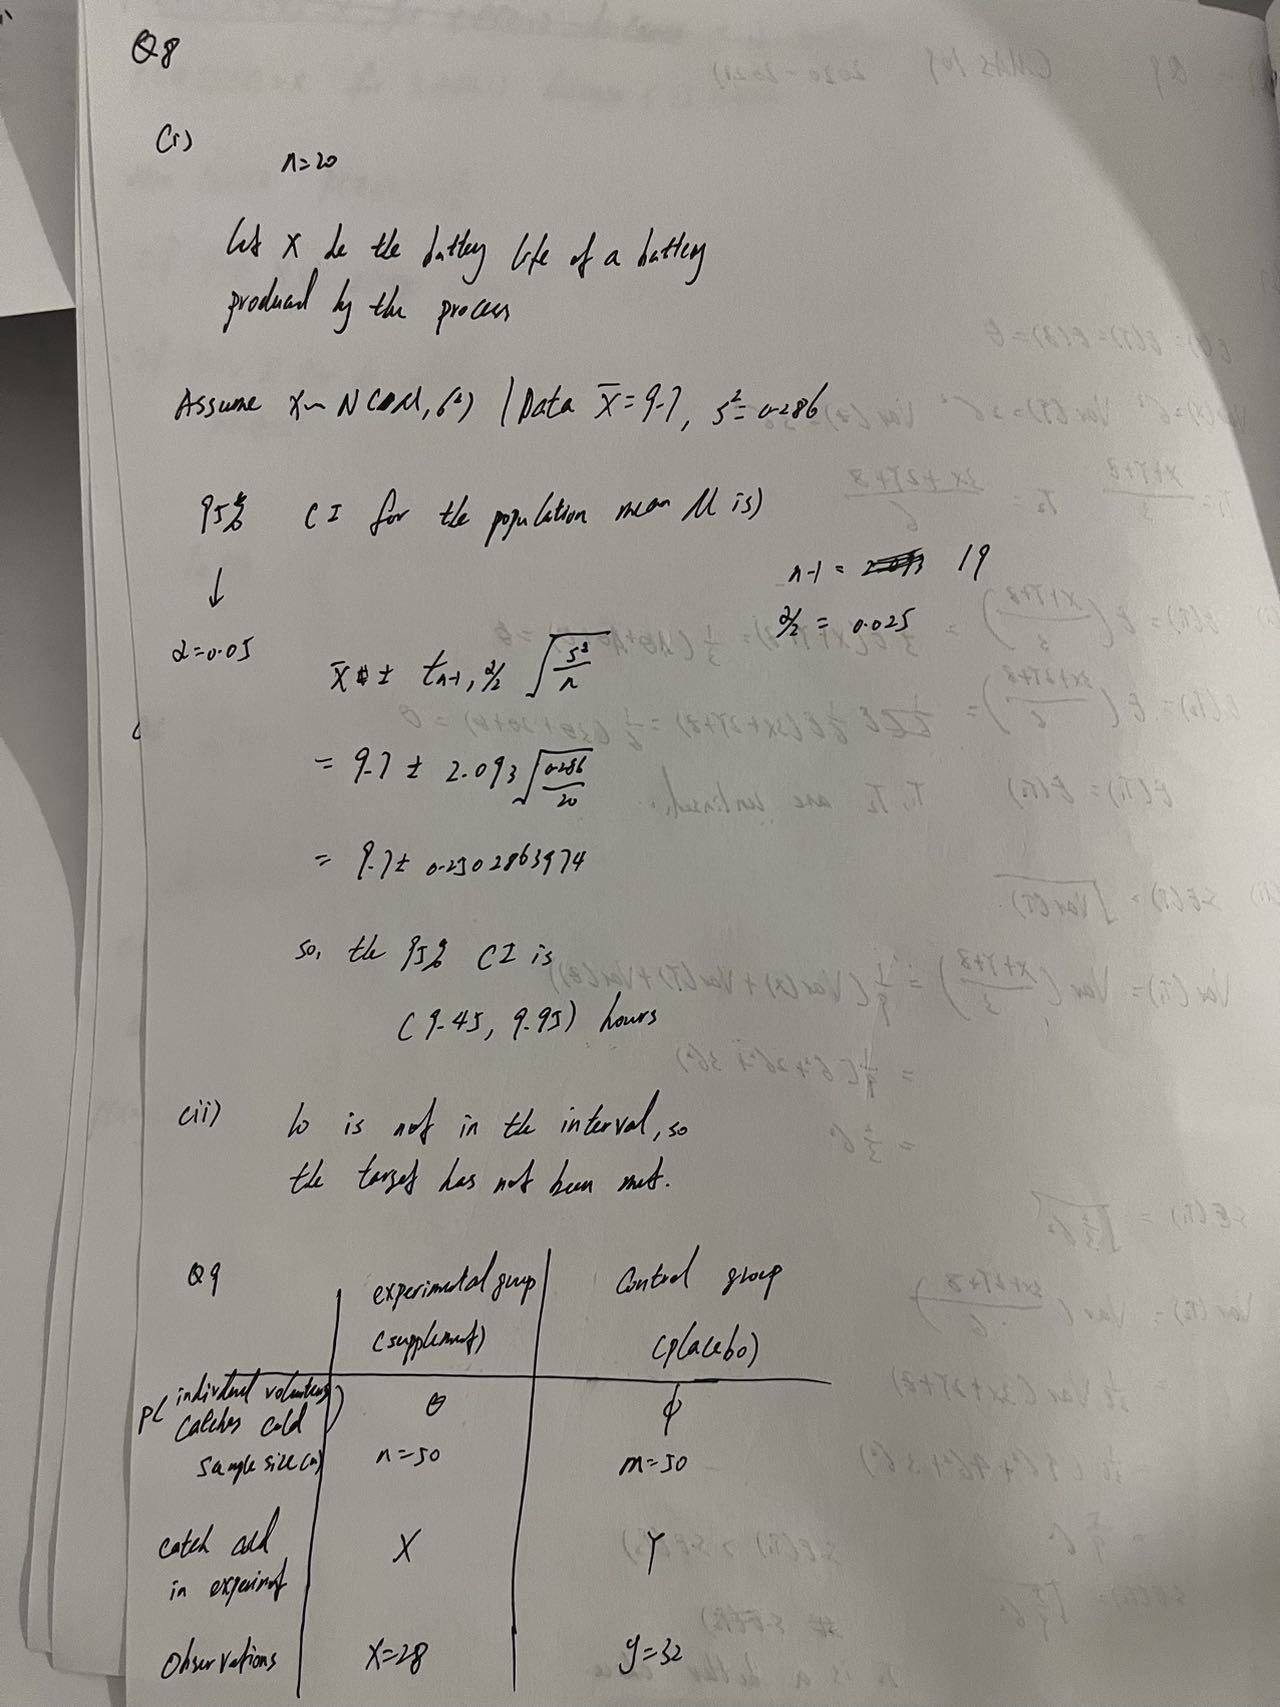 Q8
(i)
n=20
let X be the battery life of a battery
produced by the process
Assume X~N(M, σ²) | Data x̄=9.7, s²=0.286
95% CI for the population mean M is)
↓
n-1 = 19
α/2 = 0.025
α=0.05
x̄ ± t n-1, α/2 √(s²/n)
= 9.7 ± 2.093 √(0.286/20)
= 9.7 ± 0.2502863974
so, the 95% CI is
(9.45, 9.95) hours
(ii) 10 is not in the interval, so
the target has not been met.
Q9
experimental group Control group
(supplement) (placebo)
P( individual volunteer catches cold ) θ φ
sample size (n) n=50 m=50
catch cold in experiment X Y
Observations x=28 y=32